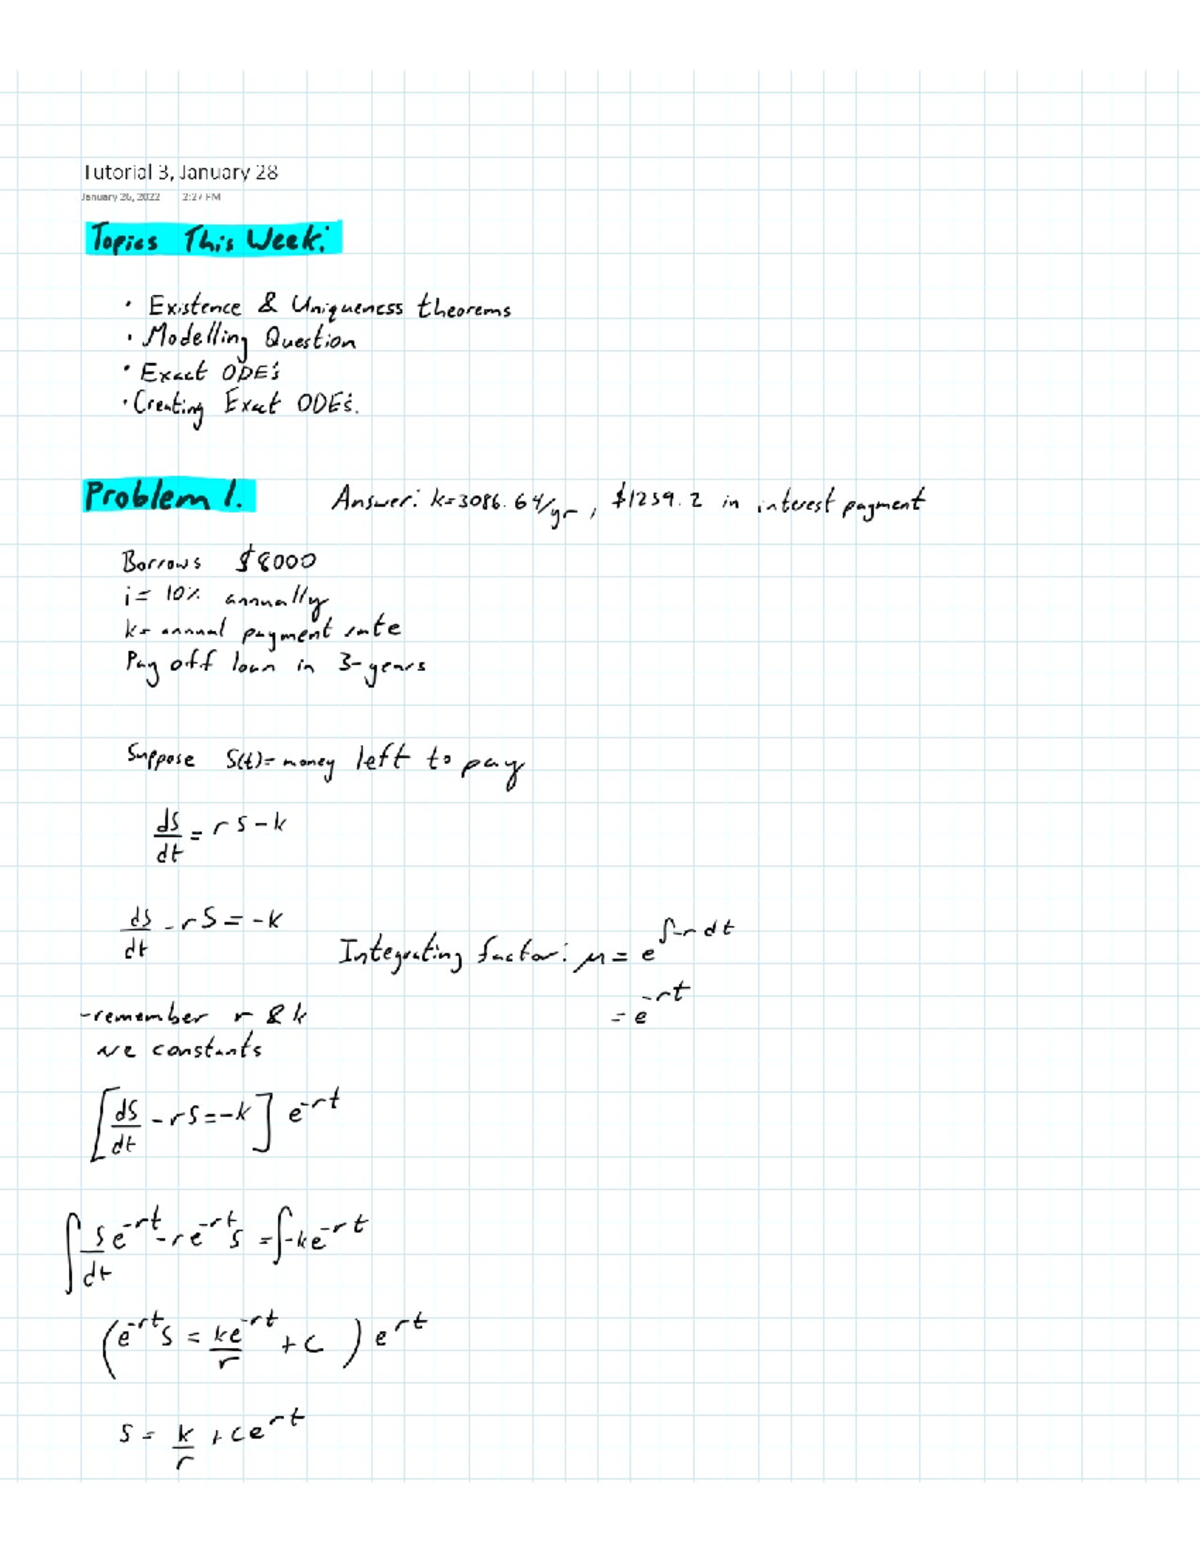 Tutorial 3, January 28
January 26, 2022 2:27 PM
Topics This Week:
• Existence & Uniqueness theorems
• Modelling Question
• Exact ODE's
• Creating Exact ODE's.
Problem 1. Answer: k=3086.64/yr, $1259.2 in interest payment
Borrows $8000
i= 10% annually
k= annual payment rate
Pay off loan in 3-years
Suppose S(t)= money left to pay
dS/dt = rS-k
dS/dt - rS = -k Integrating factor: μ = e^∫-r dt
= e^-rt
-remember r & k
are constants
[dS/dt - rS = -k] e^-rt
∫ S/dt e^-rt - re^-rt S = ∫-ke^-rt
(e^-rt S = ke^-rt/r + C) e^rt
S = k/r + Ce^rt